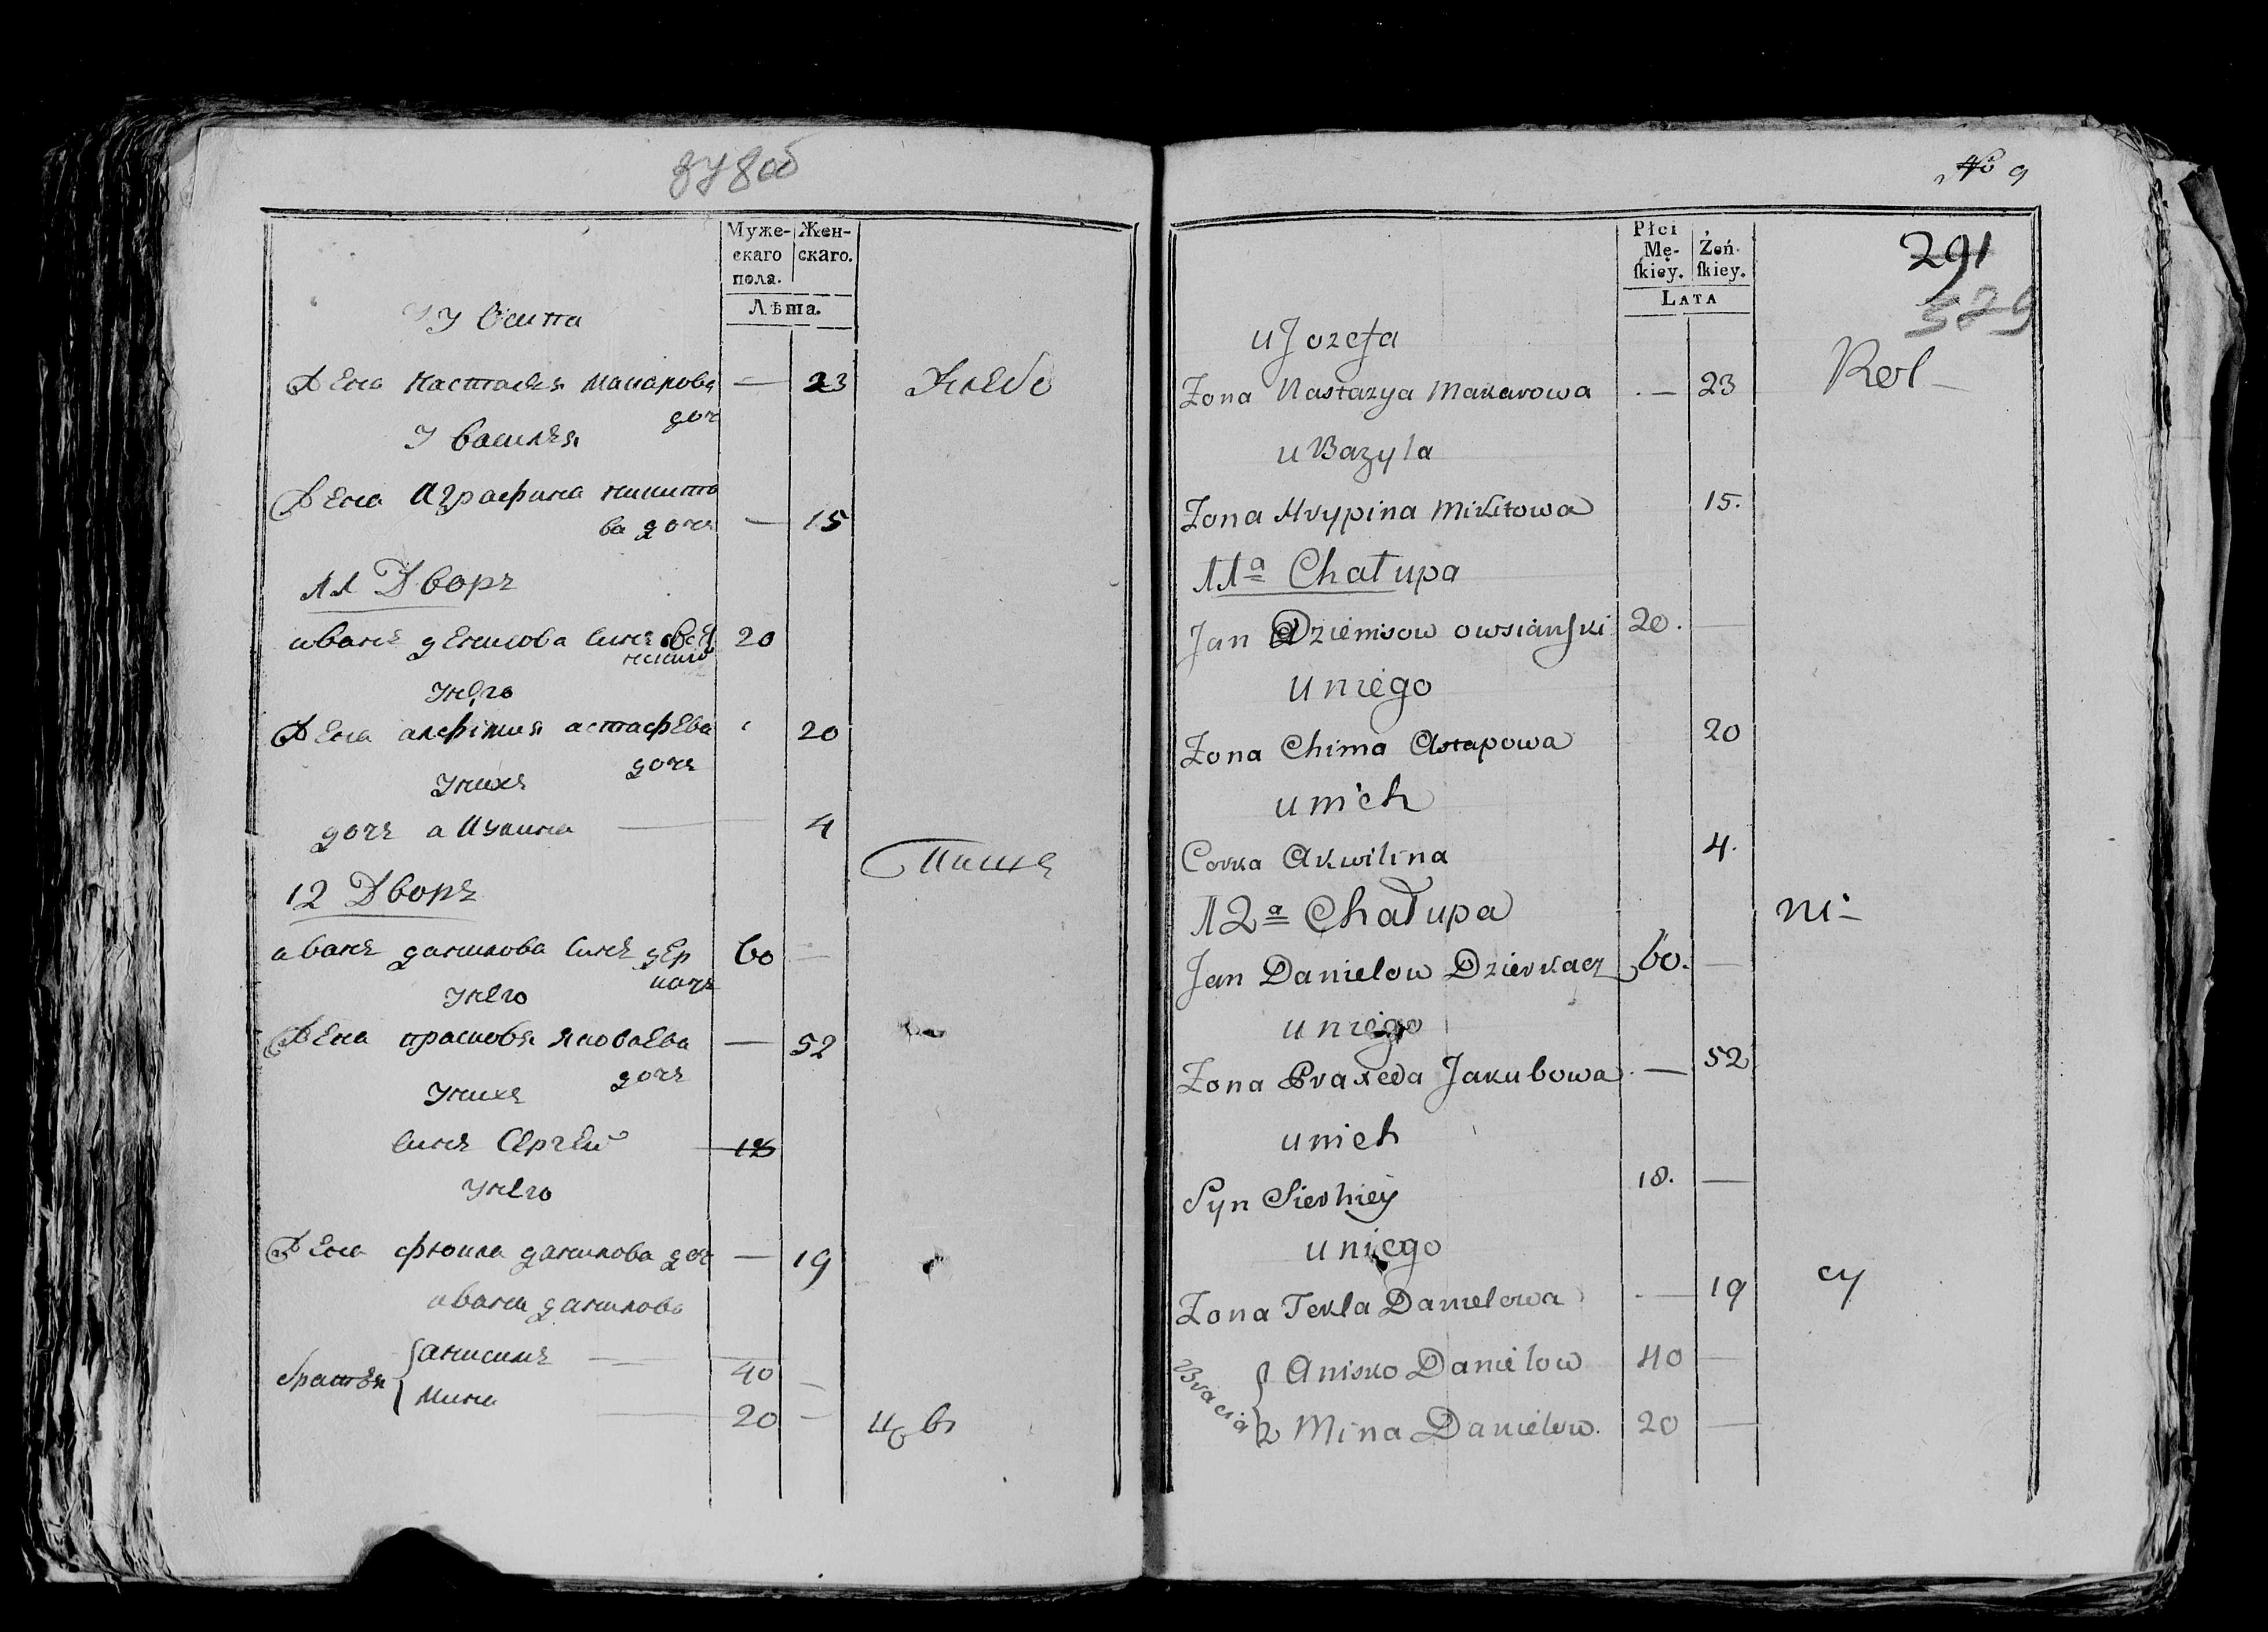 378об
Муже-
скаго
пола.
Жен-
скаго.
Лѣта.
У Осипа
Жена Настасья Макарова — 23
доч
У василья
Жена Аграфина никито
ва дочь — 15
11 Дворъ
иванъ денисова синъ овся 20
нского
Унего
Жена алфимия астафева 20
дочь
Унихъ
дочь акулина — 4
12 Дворъ
иванъ данилова синъ дер 60 —
качъ
Унего
Жена прасковя яковлева — 52
дочь
Унихъ
синъ Сергей 18
Унего
Жена фюкла данилова доч — 19
ивана данилова
братья { анисимъ — 40 —
мина — 20 —
Хлебо
Пише
No 9
291
579
Płci
Mę-
ſkiey.
Żeń-
ſkiey.
LATA
u Jozefa
Zona Nastazya Makarowa — 23
u Bazyla
Zona Hrypina Mikitowa 15.
11a Chałupa
Jan Dziemisow owsianſki 20. —
u niego
Zona Chima Astapowa 20
u nich
Corka Akwilina 4.
12a Chałupa
Jan Danielow Dzierkacz 60. —
u niego
Zona Praxeda Jakubowa — 52
u nich
Syn Sierhiey 18. —
u niego
Zona Tekla Danielowa — 19
Bracia { Anisko Danielow 40 —
2 Mina Danielow. 20 —
Rol-
ni-
cy